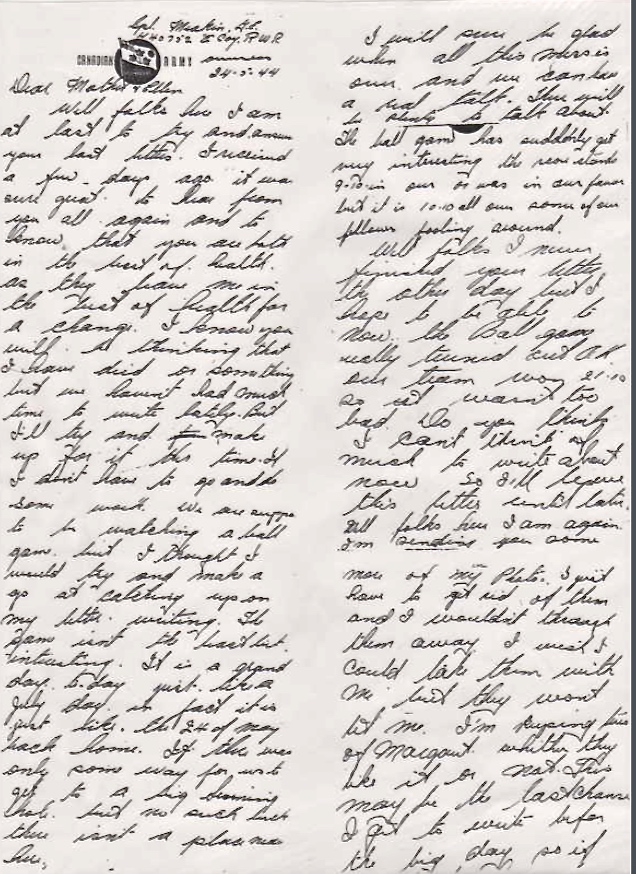 Cpl. Meakin, H.C.
H40752 E Coy. R.W.R
CANADIAN ARMY overseas
24-5-44
Dear Mother & Ellen
Well folks here I am
at last to try and answer
your last letter. I received
a few days ago it was
sure great to hear from
you all again and to
know that you are both
in the best of health.
as they leave me in
the best of health for
a change. I know you
will be thinking that
I have died or something
but we haven't had much
time to write lately. But
I'll try and make
up for it this time. If
I don't have to go and do
some work. We are suppo
to be watching a ball
game. but I thought I
would try and make a
go at catching up on
my letter writing. The
game isn't the least bit
interesting. It is a grand
day to-day just like a
July day. in fact it is
just like the 24 of may
back home. If there was
only some way for us to
get to a big swimming
hole. but no such luck
there isn't a place near
here.
I will sure be glad
when all this mess is
over and we can have
a real talk. There will
be plenty to talk about
The ball game has suddenly got
very interesting the score stands
9-10 in our or was in our favor
but it is 10-10 all our some of our
fellows fooling around.
Well folks I never
finished your letter
the other day but I
hope to be able to
now. the Ball game
really turned out OK
our team won 21-10
so it wasn't too
bad. Do you think
I can't think of
much to write about
now So I'll leave
this letter until later.
Well folks here I am again.
I'm sending you some
more of my Photo. I just
have to get rid of them
and I wouldn't through
them away I wish I
could take them with
me but they wont
let me. I'm keeping two
of Margaret whether they
like it or not. This
may be the last chance
I get to write before
the big day so if